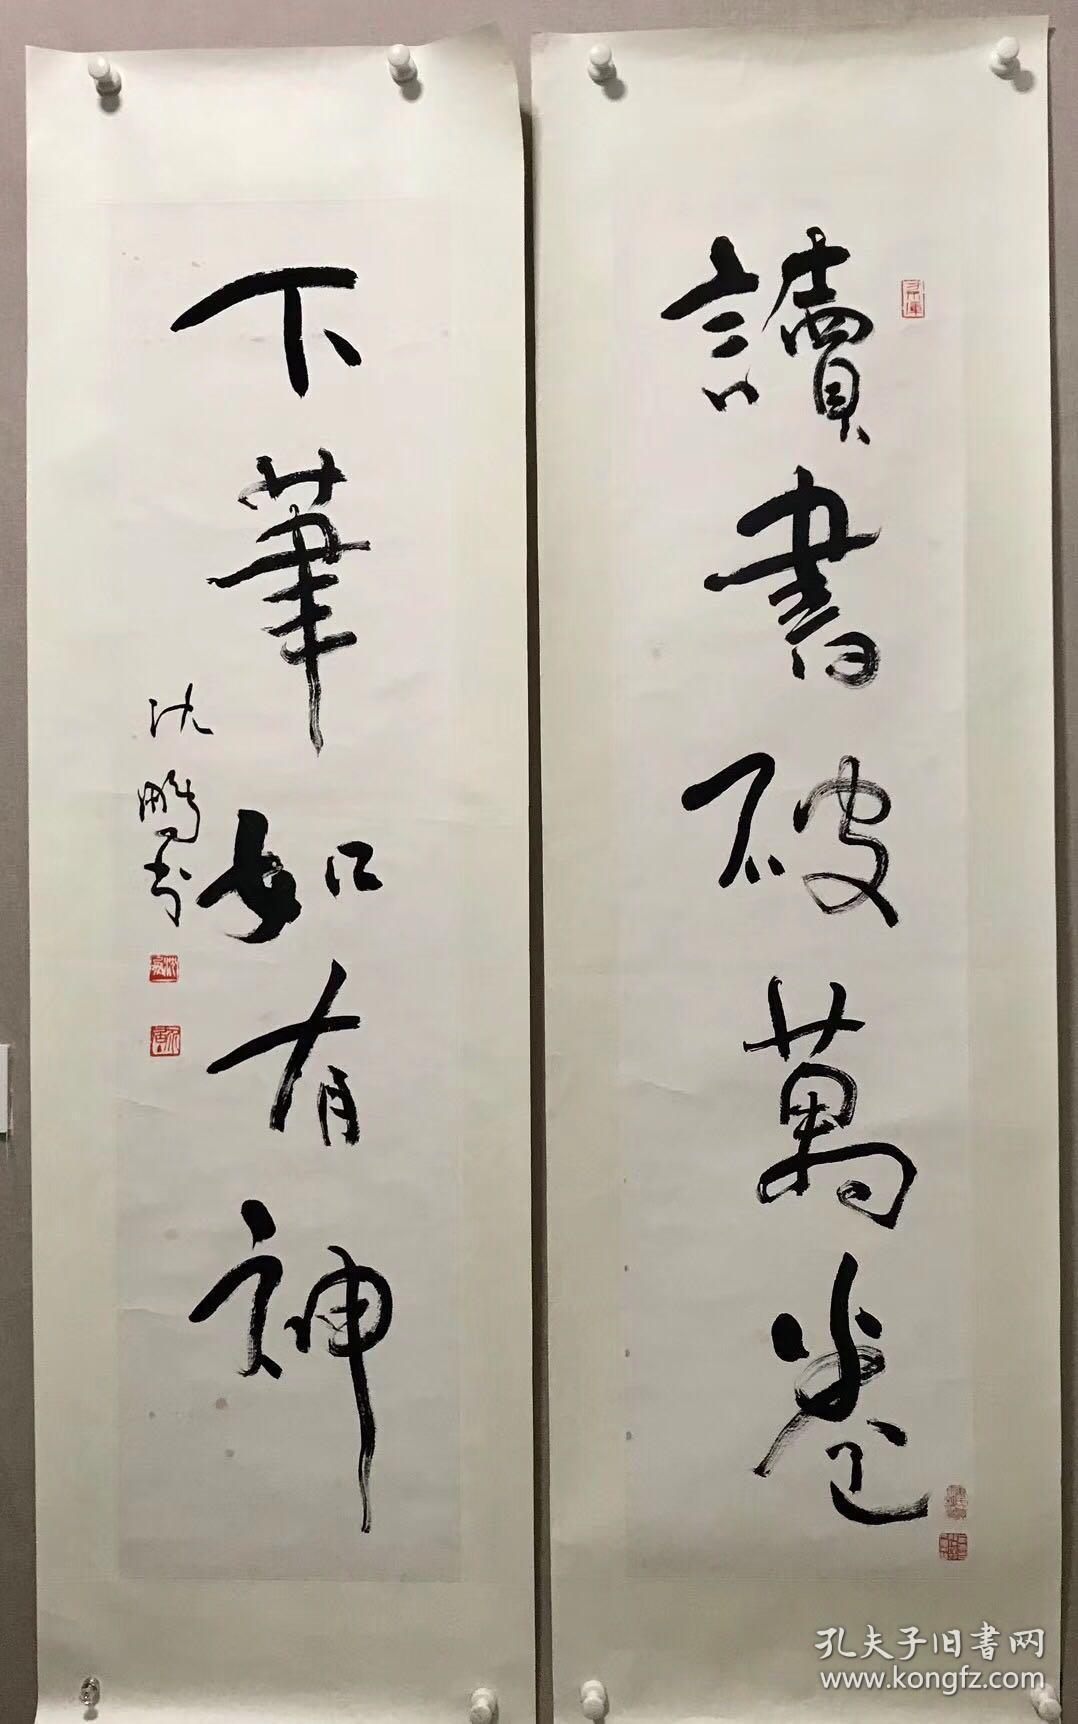 讀書破萬卷
下筆如有神
沈鵬書
孔夫子旧書网
www.kongfz.com